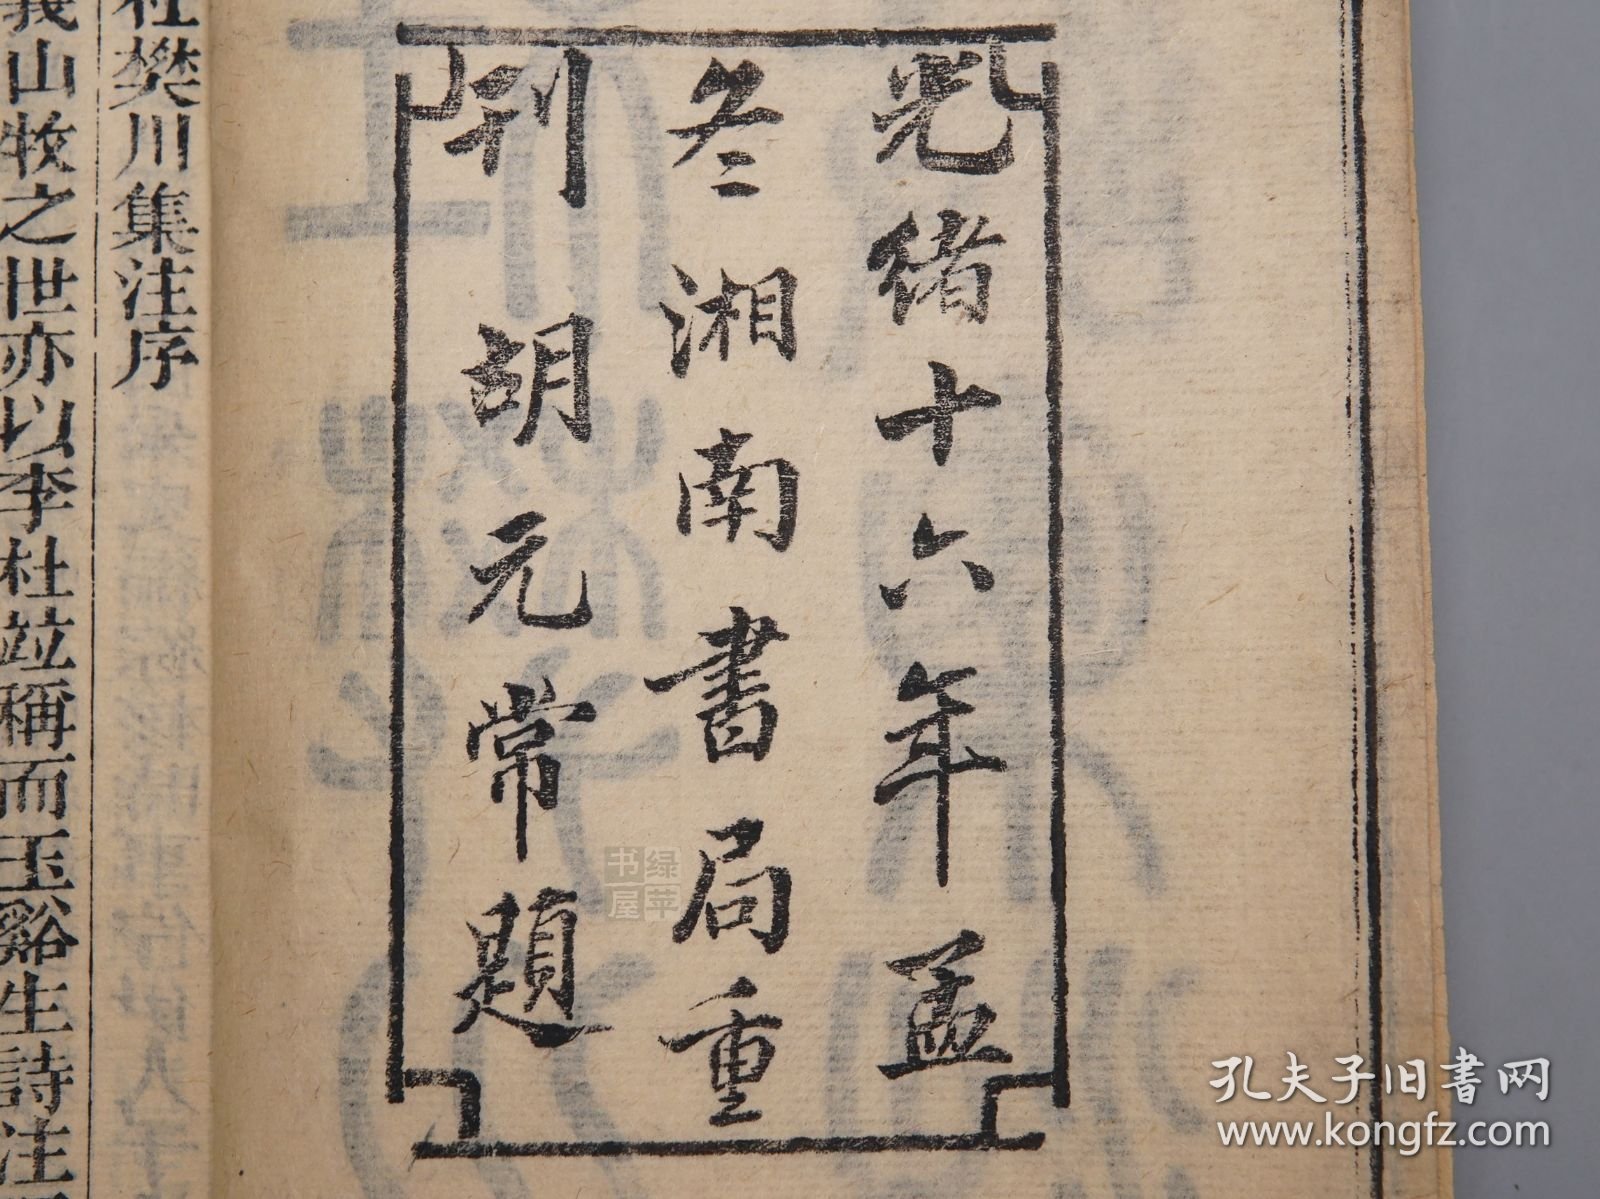 光緒十六年孟
冬湘南書局重
刊胡元常題
杜樊川集注序
義山牧之世亦以李杜竝稱而玉谿生詩注
绿苹书屋
孔夫子旧书网
www.kongfz.com